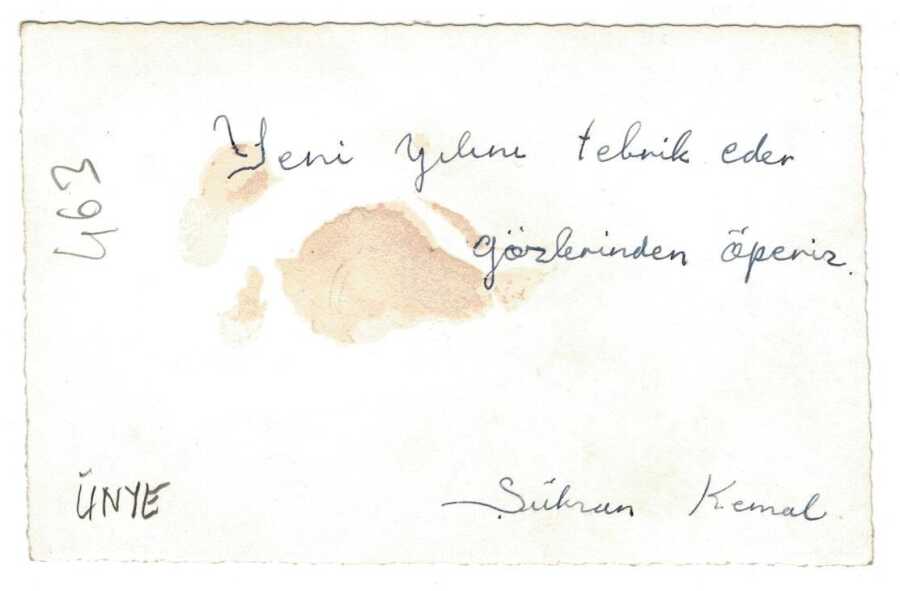 463
Yeni yılını tebrik eder
gözlerinden öperiz.
Şükran Kemal
ÜNYE